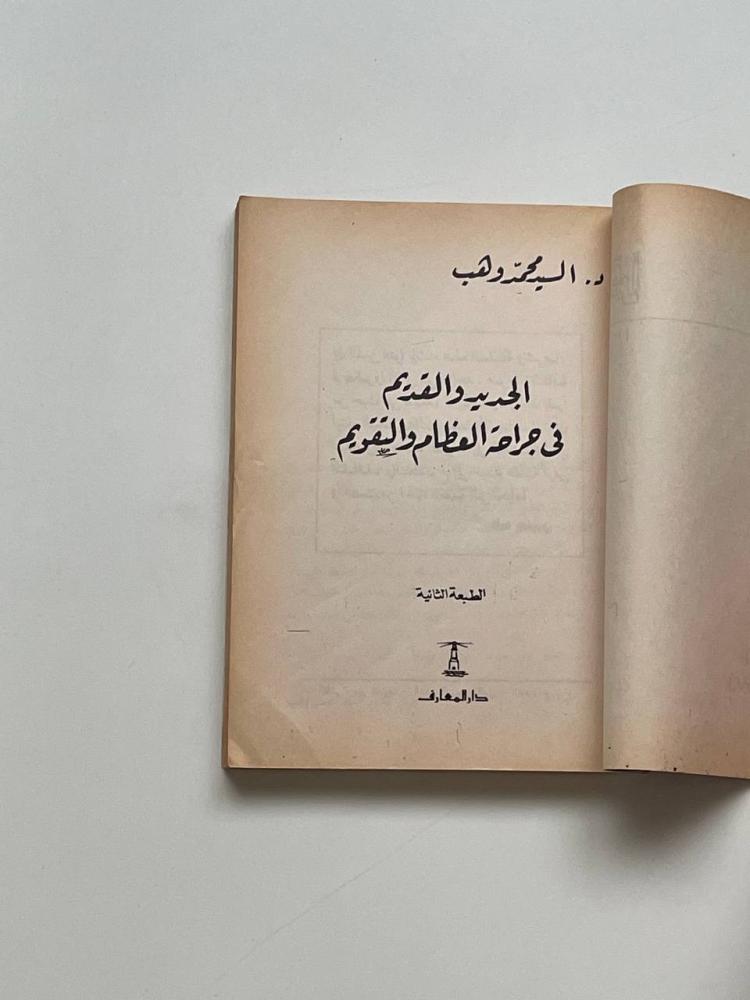 د. السيد محمد وهب
الجديد والقديم
فى جراحة العظام والتقويم
الطبعة الثانية
دار المعارف